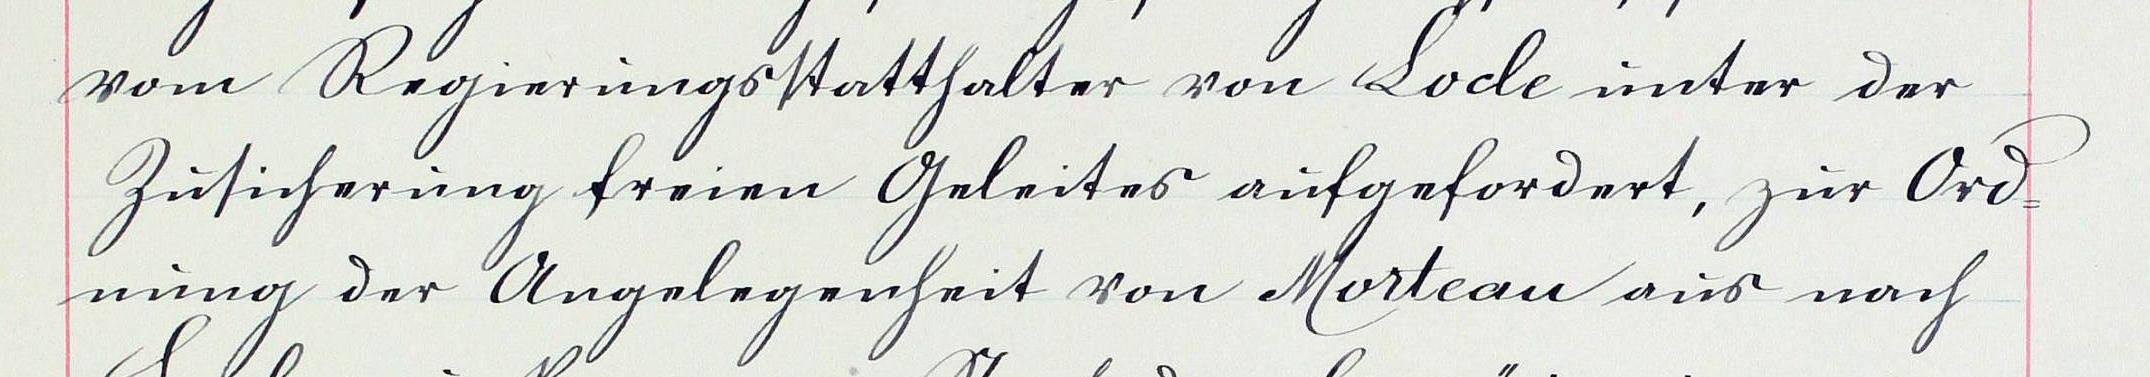 vom Regierungsstatthalter von Locle unter der
Zusicherung freien Geleites aufgefordert, zur Ord=
nung der Angelegenheit von Morteau aus nach